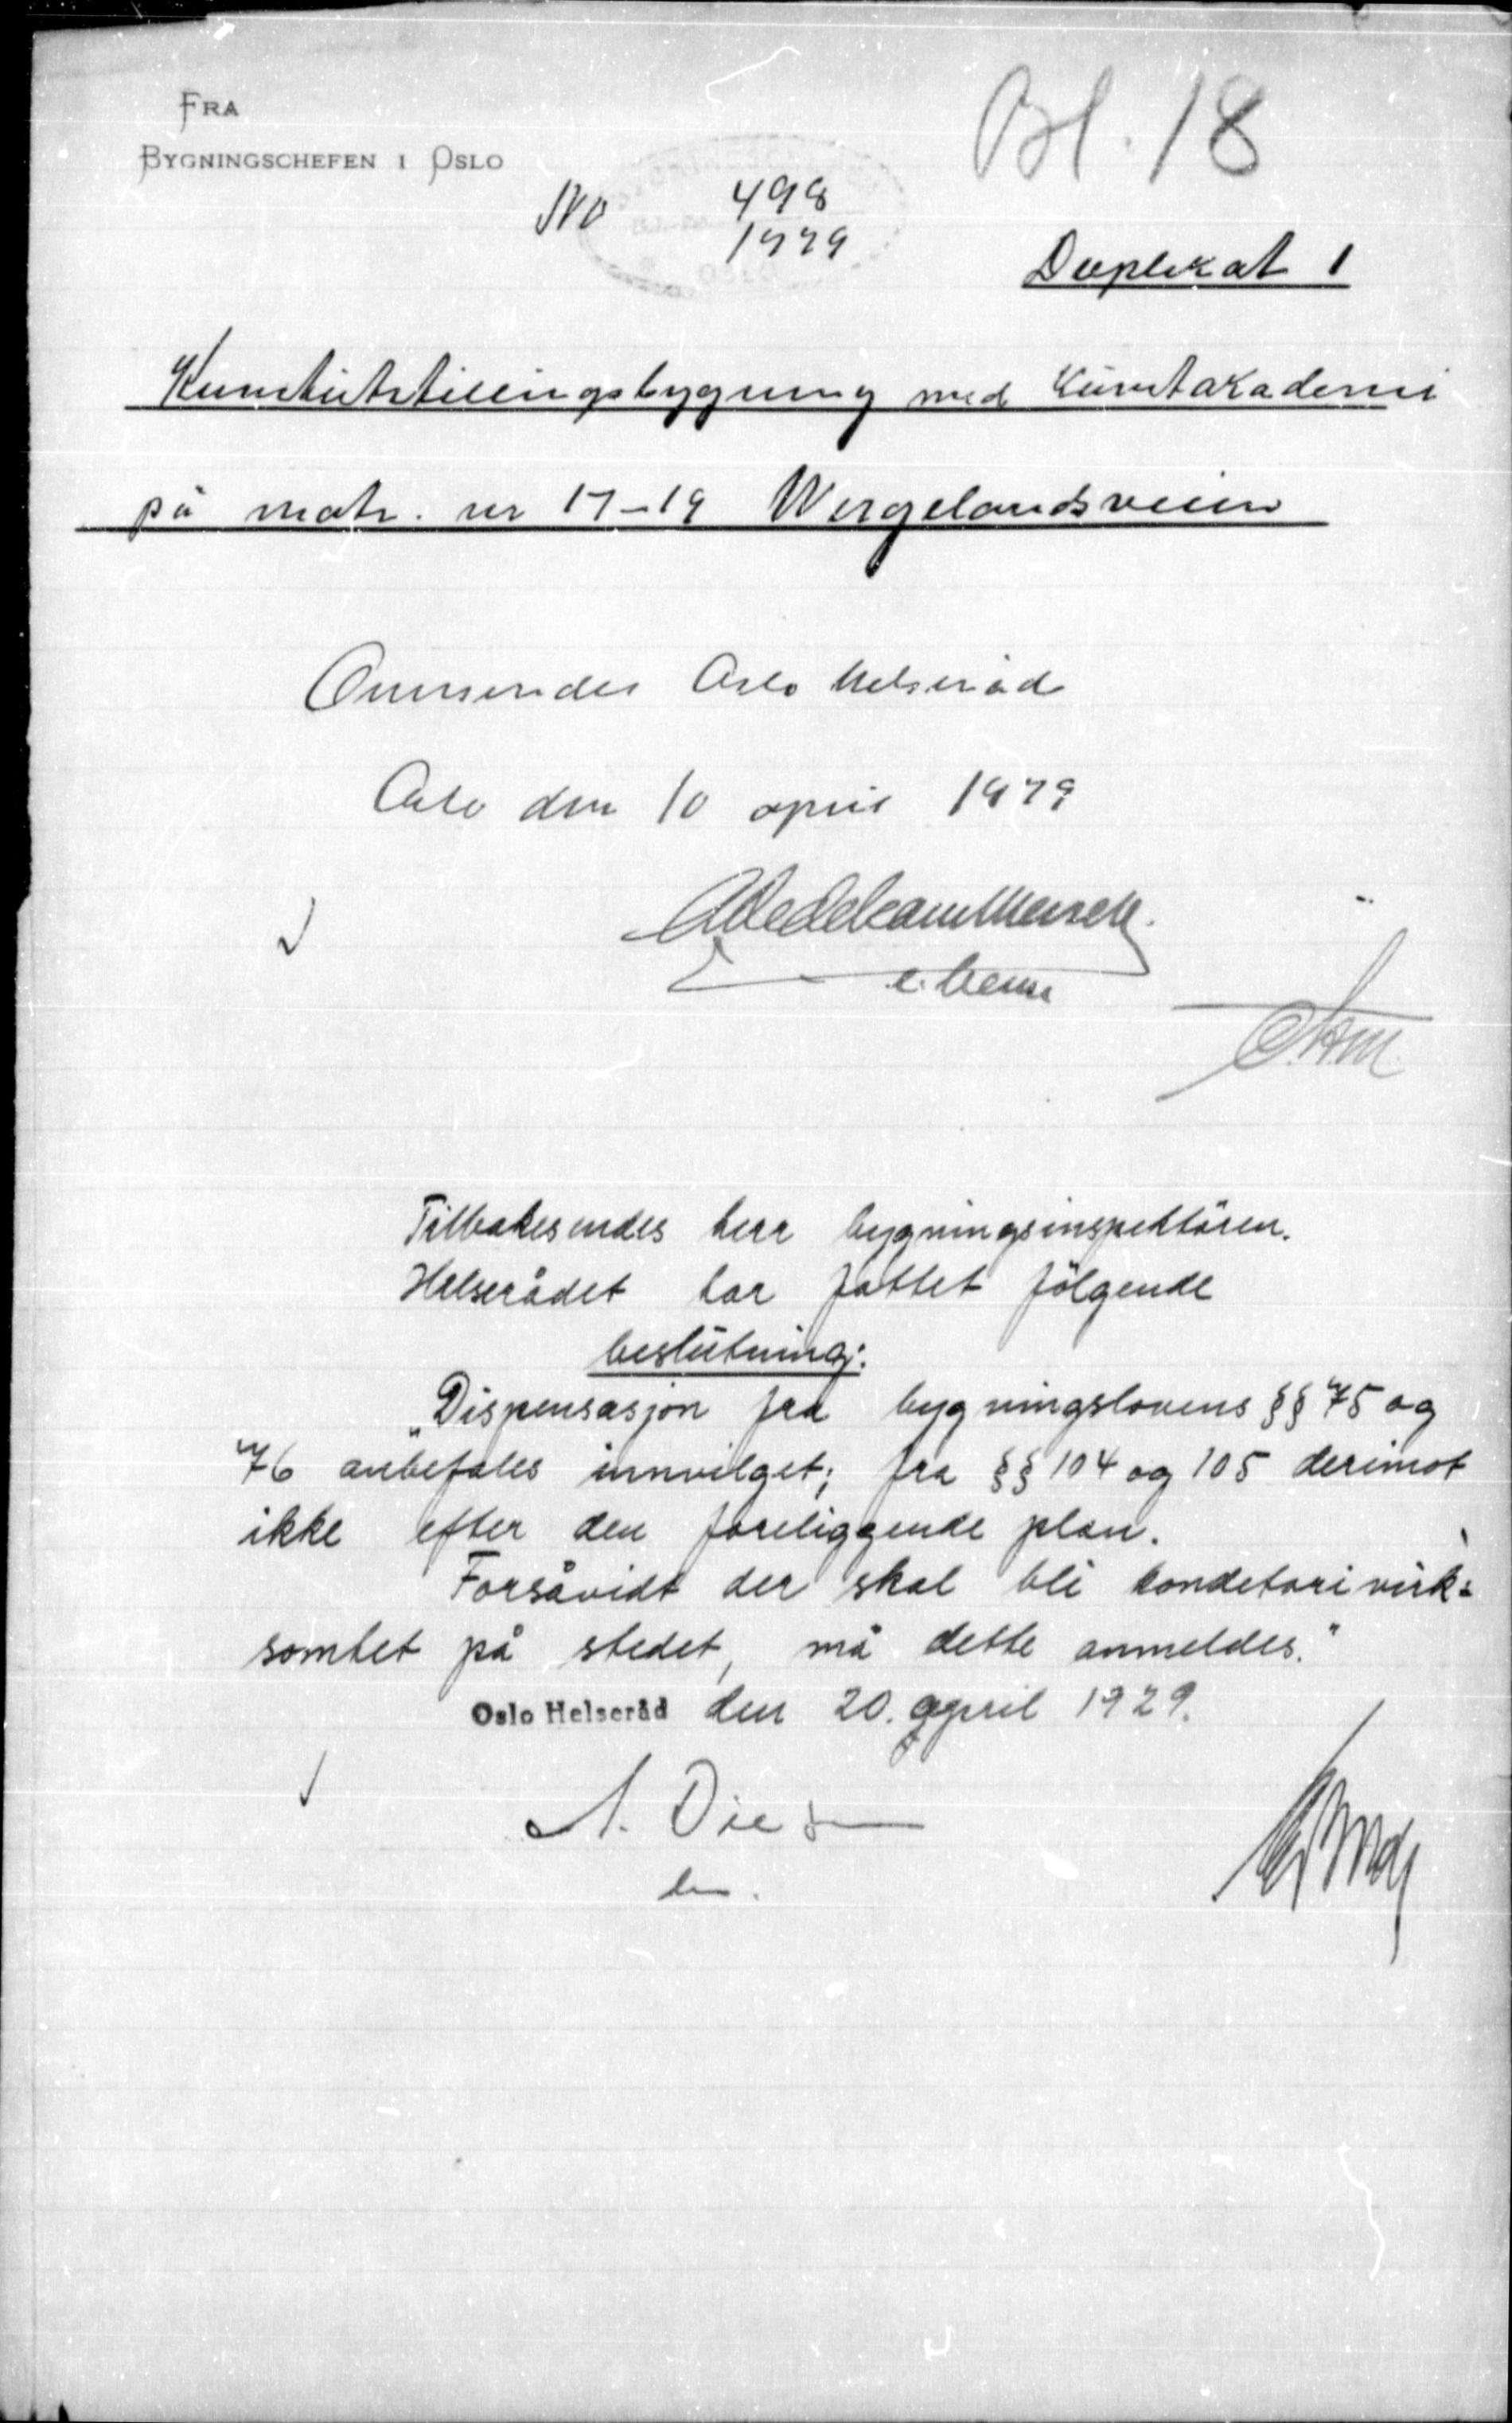 FRA
BYGNINGSCHEFEN I OSLO
Bl. 18
No 498
1929
Duplikat 1
Kunstutstillingsbygning med Kunstakademi
på matr. nr 17-19 Wergelandsveien
Oversendes Oslo helseråd
Oslo den 10 april 1929
Tilbakesendes herr bygningsinspektören.
Helserådet har fattet fölgende
beslutning:
„Dispensasjon fra bygningslovens §§ 75 og
76 anbefales innvilget; fra §§ 104 og 105 derimot
ikke efter den foreliggende plan.
Forsåvidt der skal bli konditorivirk=
somhet på stedet, må dette anmeldes."
Oslo Helseråd den 20. april 1929.